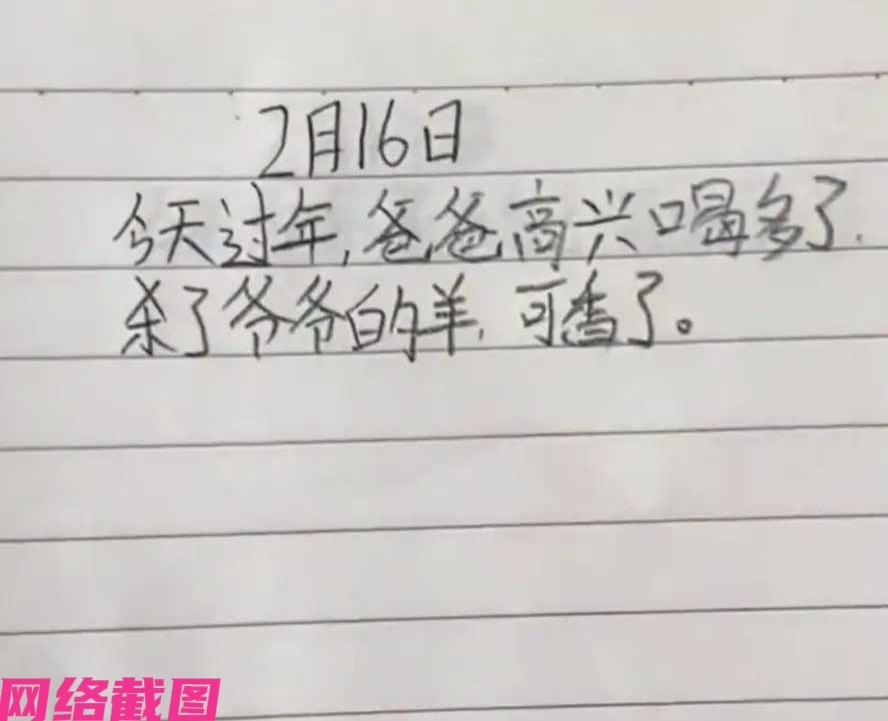 2月16日
今天过年,爸爸高兴喝多了.
杀了爷爷的羊,可香了。
网络截图